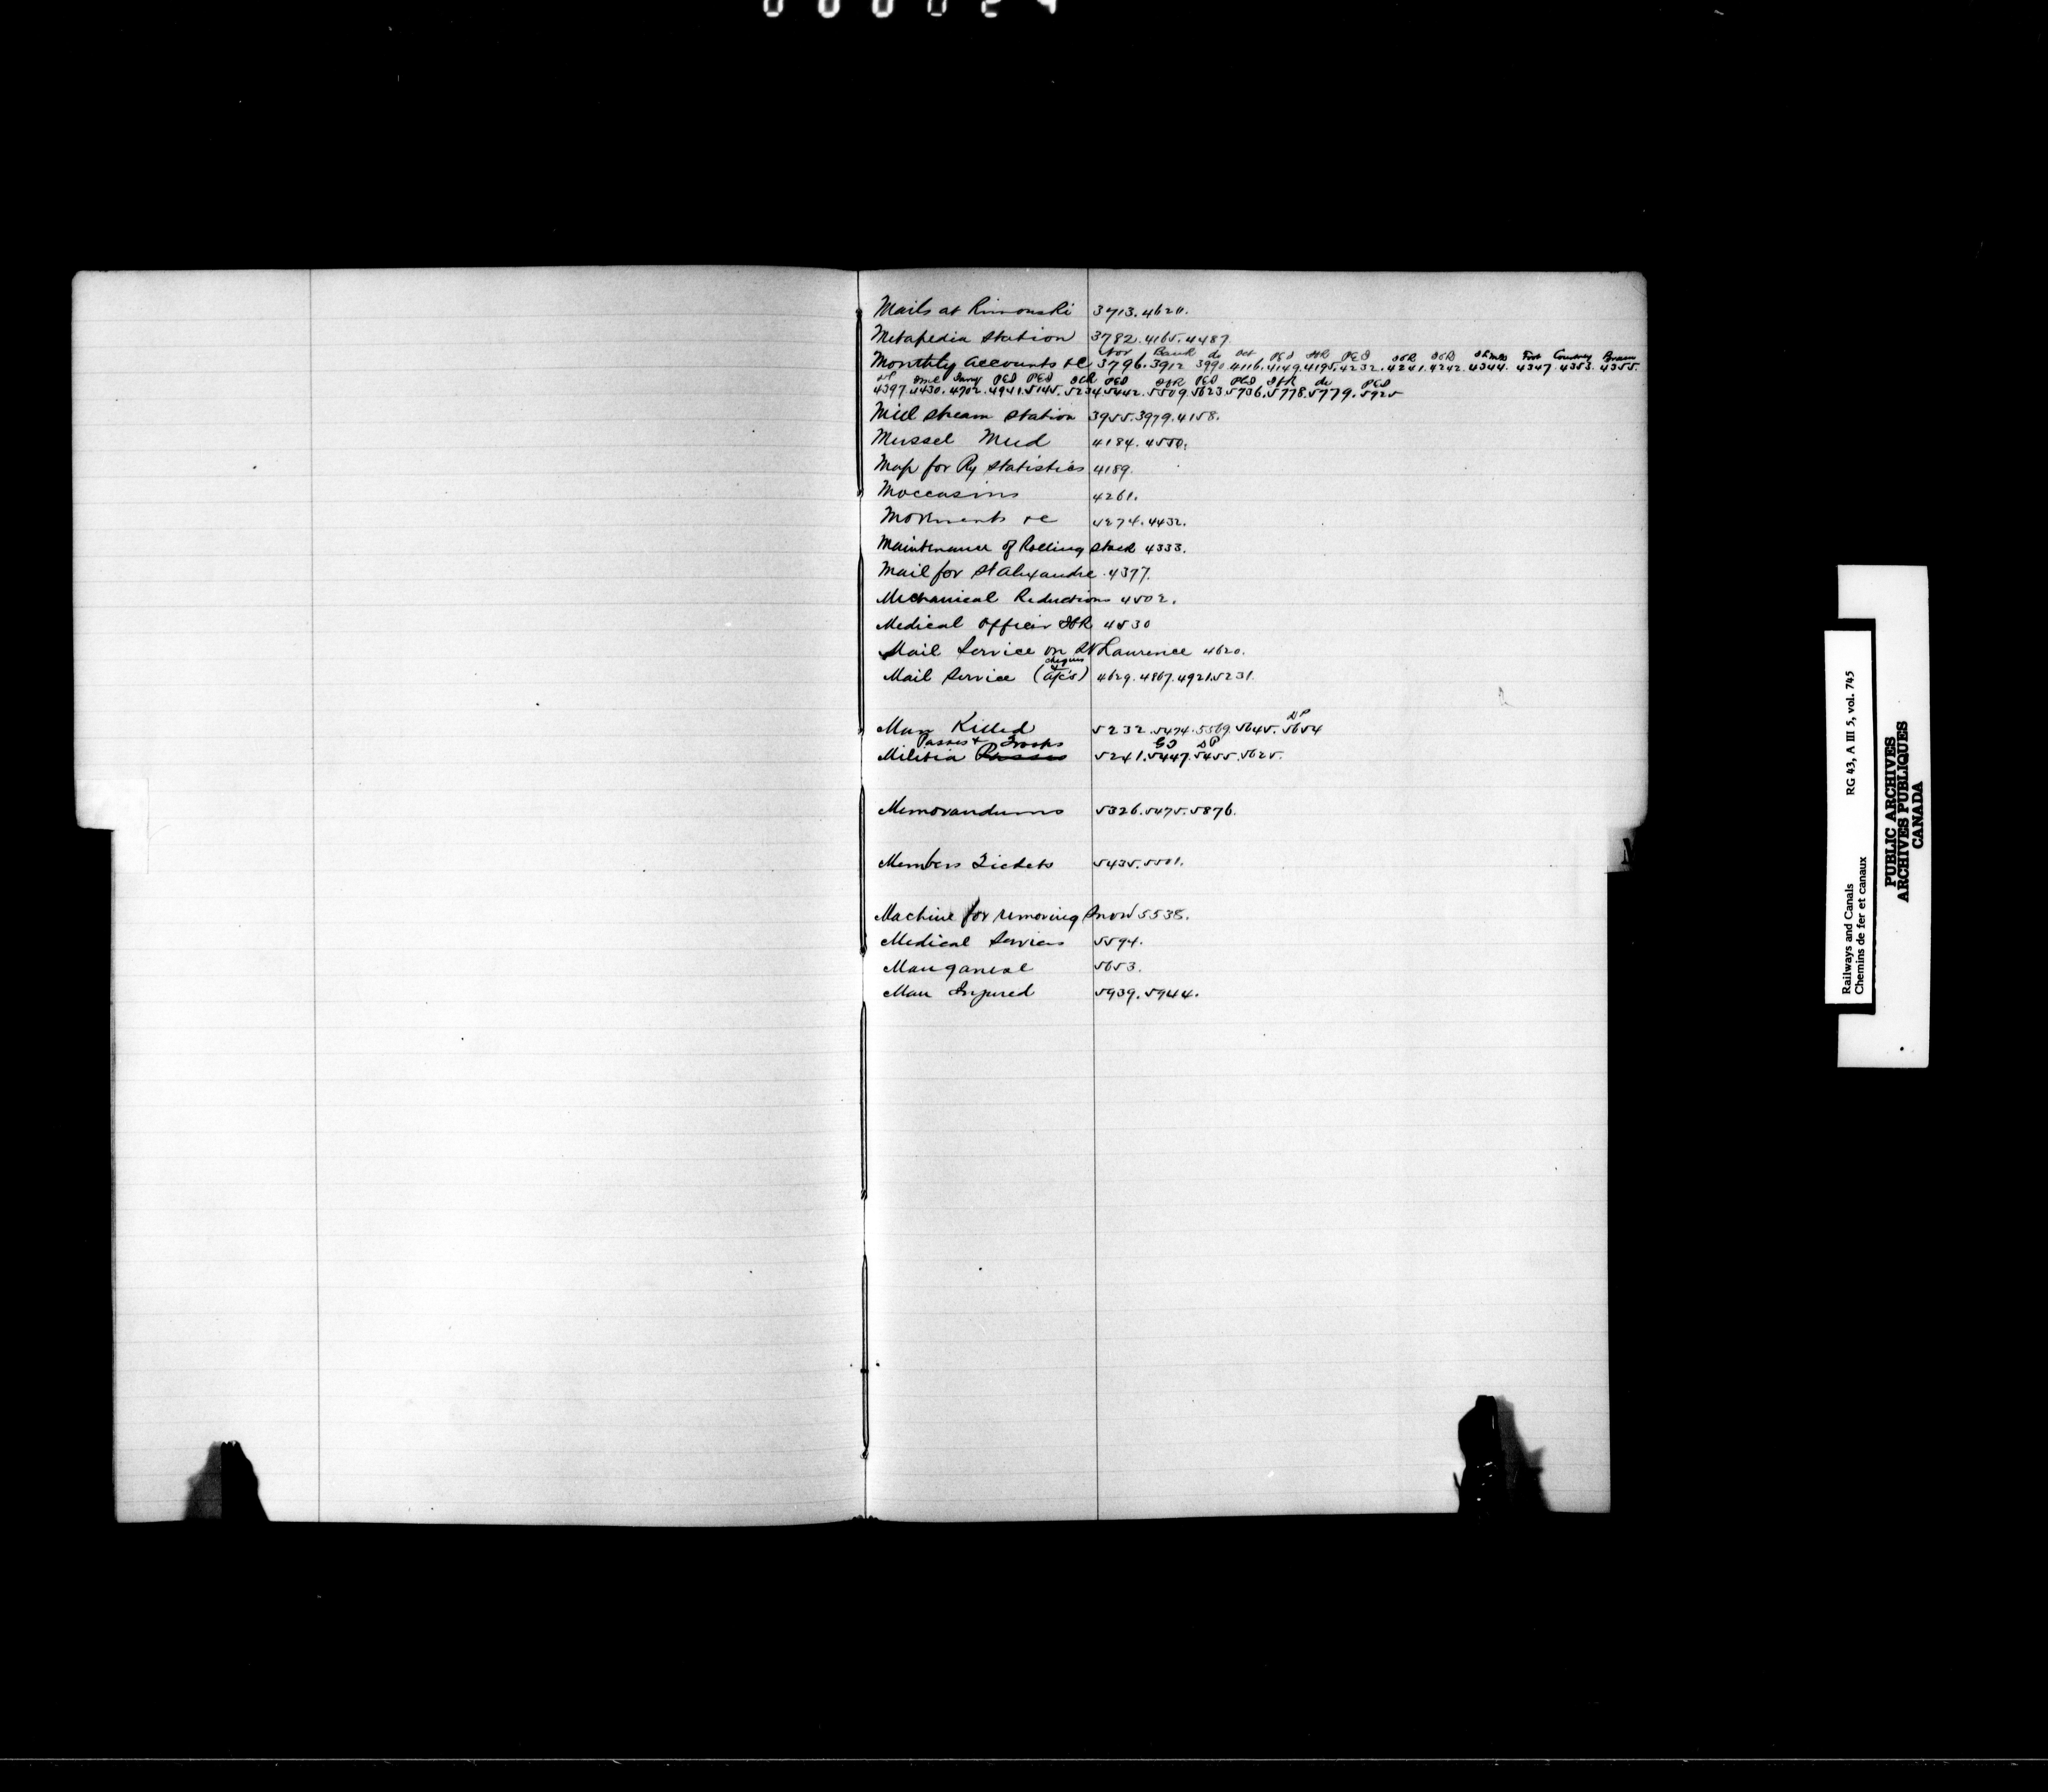 000024
Mails at Rimouski 3713. 4620.
Metapedia Station 3782. 4165. 4487
Nov Bank do Oct PEI ICR PEI ICR ICR
Monthly Accounts &c 3796. 3912 3990 4116. 4149. 4195. 4232. 4241. 4242. 4344. 4347. 4353. 4355.
PEI PEI ICR PEI ICR PEI PEI ICR do PEI
4397. 4430. 4702. 4941. 5145. 5234 5442. 5509. 5623. 5736. 5778. 5779. 5925
Mill Stream Station 3955. 3979. 4158.
Mussel Mud 4184. 4550.
Map for Ry Statistics 4189.
Moccasins 4261.
4274. 4432.
Maintenance of Rolling Stock 4333.
Mail for St Alexandre 4377.
Mechanical Reductions 4502.
Medical Officer ICR 4530
Mail Service on St Laurence 4620.
cheques &
Mail Service (a/c's) 4629. 4867. 4921. 5231.
DP
Man Killed 5232. 5474. 5569. 5645. 5654
Passes & Troops GJ DP
Militia Passes 5241. 5447. 5455. 5625.
Memorandums 5326. 5475. 5876.
Members Tickets 5435. 5501.
Machine for removing Snow 5535.
Medical Services 5594.
Manganese 5653.
Man Injured 5939. 5944.
M
Railways and Canals RG 43, A III 5, vol. 745
Chemins de fer et canaux
PUBLIC ARCHIVES
ARCHIVES PUBLIQUES
CANADA